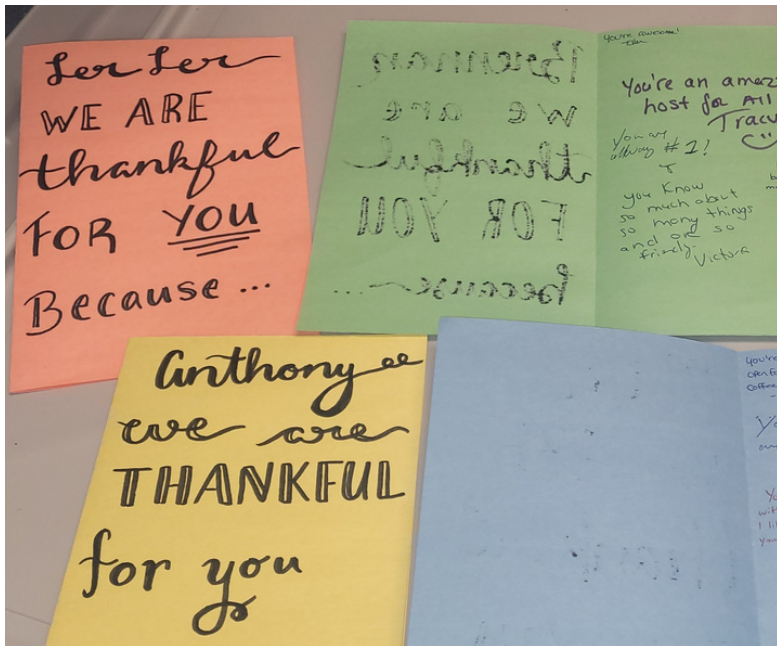 Ler Ler
WE ARE
thankful
FOR YOU
Because...
Brennan
we are
thankful
FOR YOU
because...
You're awesome!
You're an
host for All
Tracy
#1!
you know
so much about
so many things
and are so
friendly.
Victoria
Anthony
we are
THANKFUL
for you
you're
open
coffee